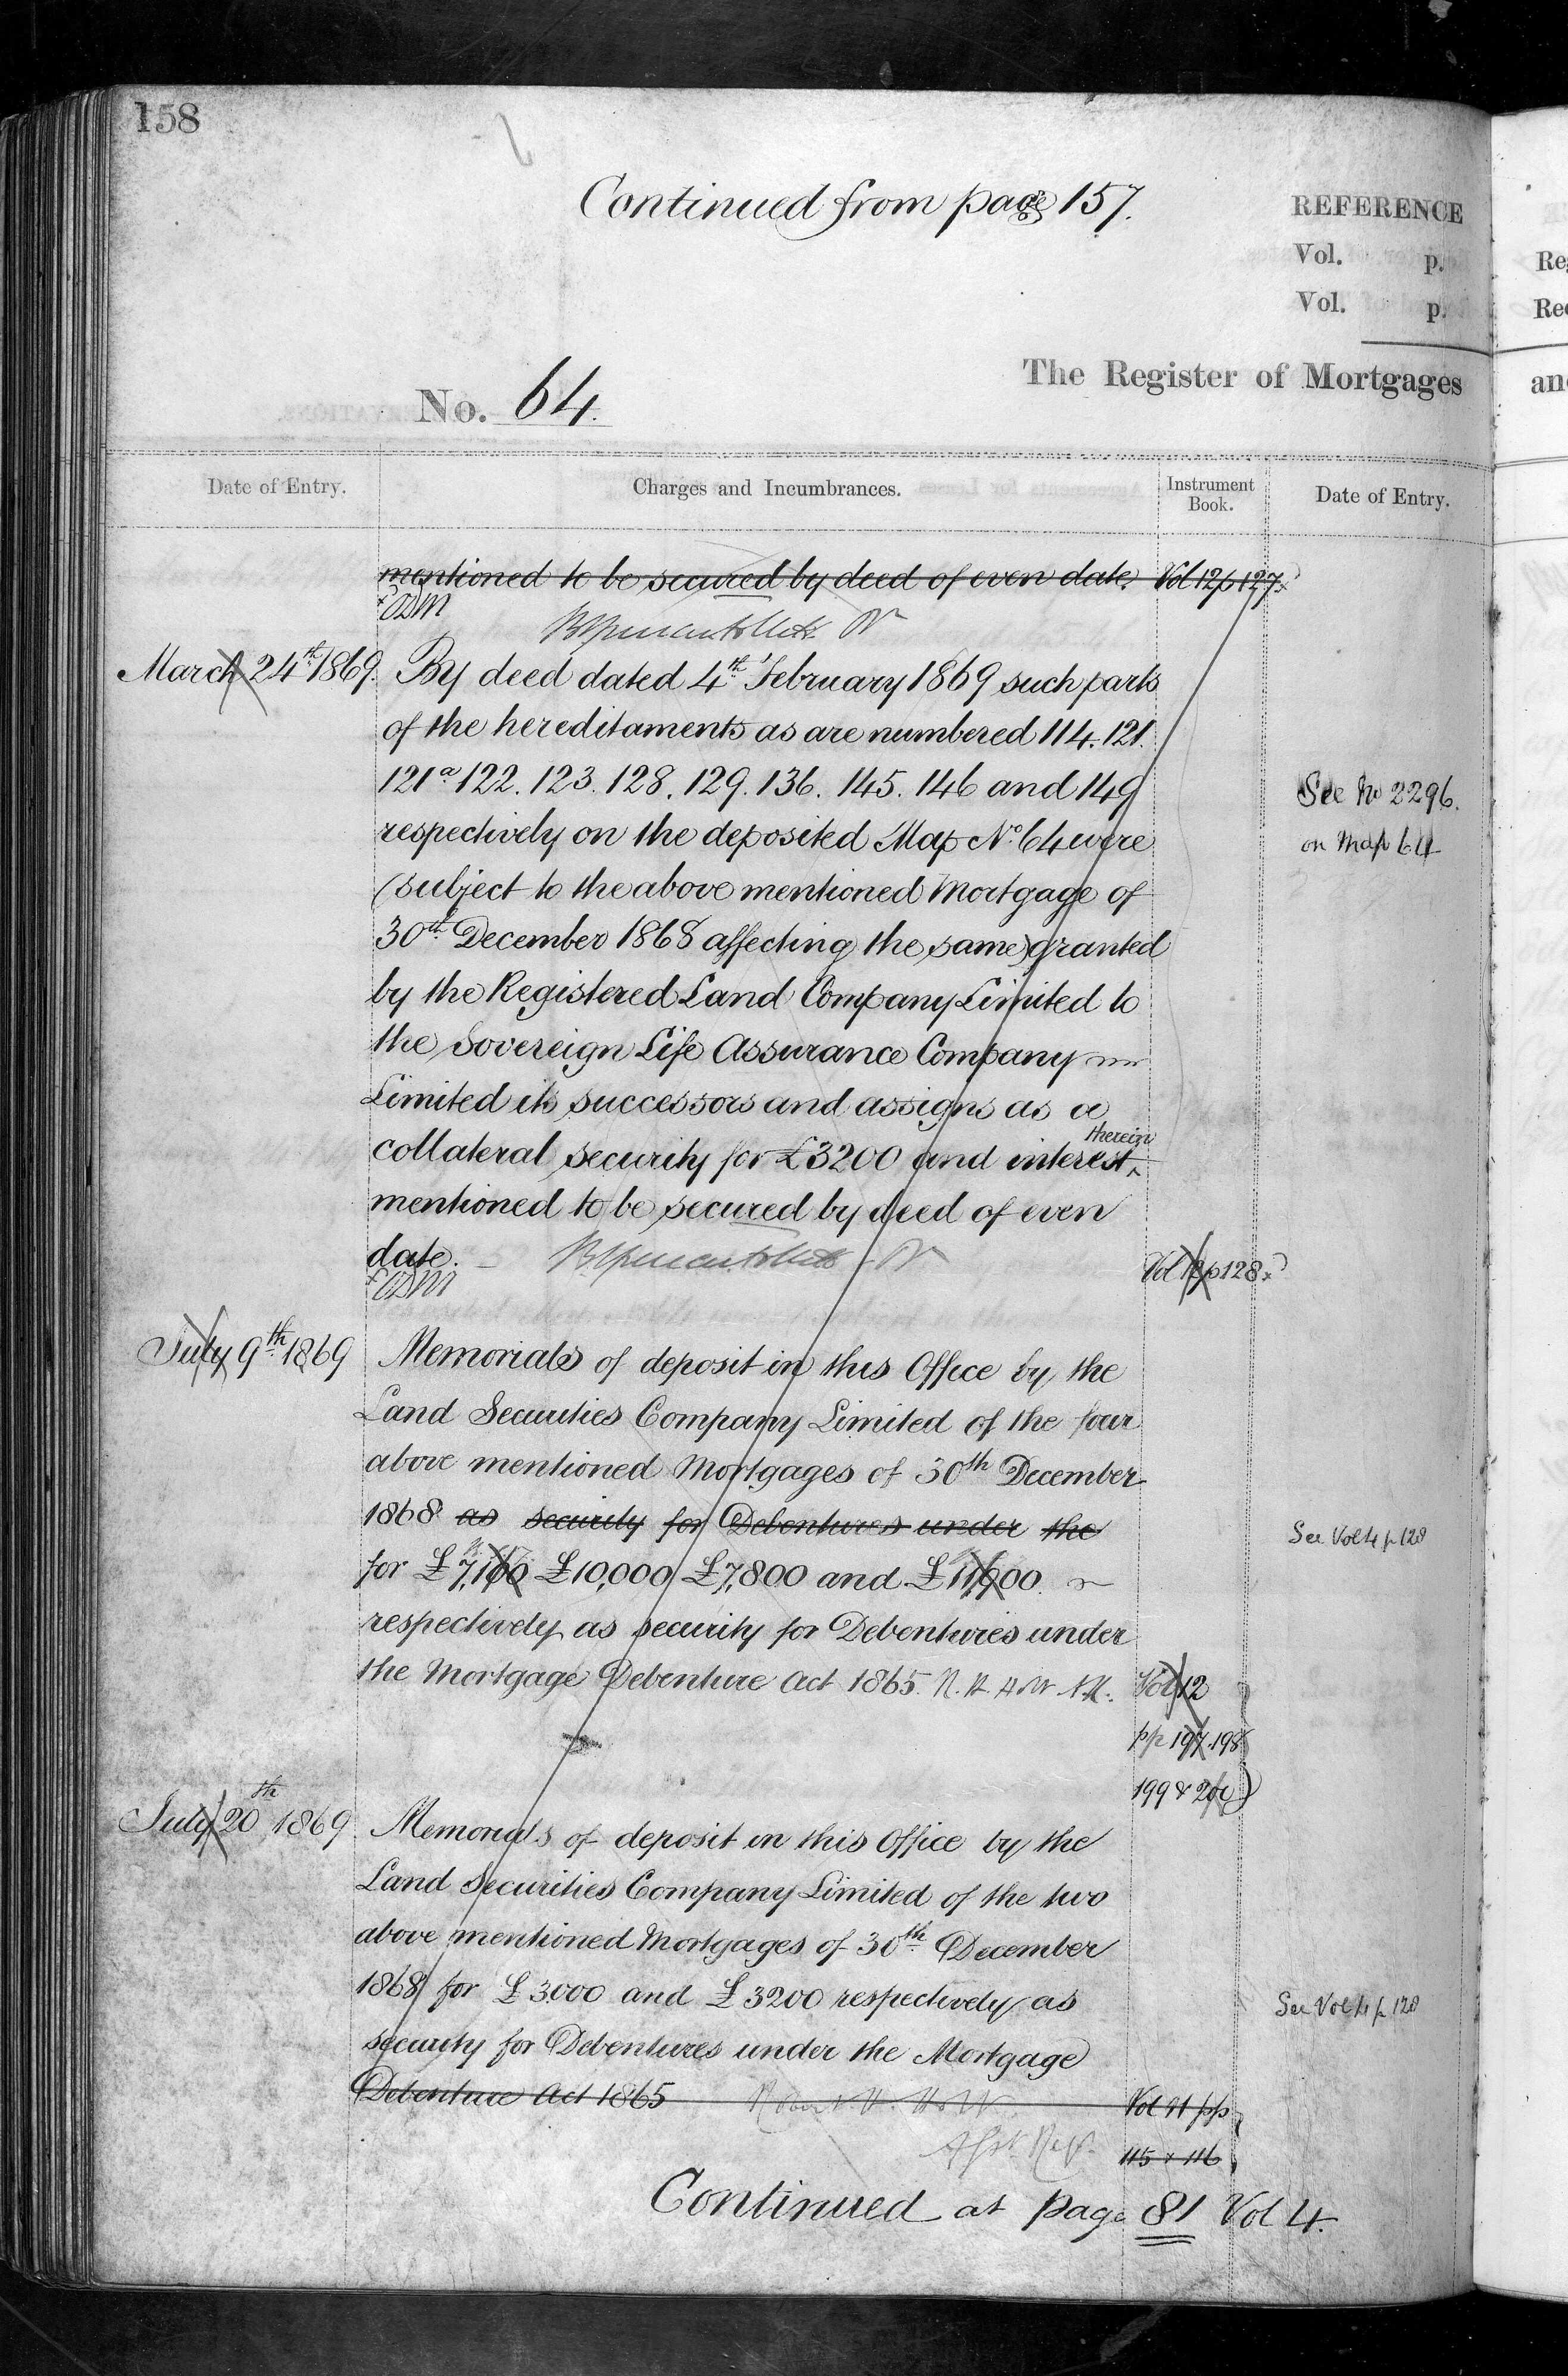 158
Continued from page 157.
REFERENCE
Vol. p.
Vol. p.
The Register of Mortgages
No. 64.
Date of Entry.
Charges and Incumbrances.
Instrument Book.
Date of Entry.
mentioned to be secured by deed of even date. Vol 12 p 127.
March 24th 1869. By deed dated 4th February 1869 such parts
of the hereditaments as are numbered 114. 121.
121a 122. 123. 128. 129. 136. 145. 146 and 149
See No 2296.
respectively on the deposited Map No. 64 were
on Map 64
(subject to the above mentioned Mortgage of
30th December 1868 affecting the same) granted
by the Registered Land Company Limited to
the Sovereign Life Assurance Company
Limited its successors and assigns as a
collateral security for £3200 and interest therein
mentioned to be secured by deed of even
date. Vol 12 p 128.
July 9th 1869 Memorials of deposit in this Office by the
Land Securities Company Limited of the four
above mentioned Mortgages of 30th December
1868 as security for Debentures under the
See Vol 4 p 128
for £7,100 £10,000 £7,800 and £11,000.
respectively as security for Debentures under
the Mortgage Debenture Act 1865. Vol 12
pp 197. 198
199 & 200
July 20th 1869 Memorials of deposit in this Office by the
Land Securities Company Limited of the two
above mentioned Mortgages of 30th December
1868 for £3000 and £3200 respectively as
See Vol 4 p 128
security for Debentures under the Mortgage
Debenture Act 1865 Vol 11 pp
115 & 116
Continued at page 81 Vol 4.